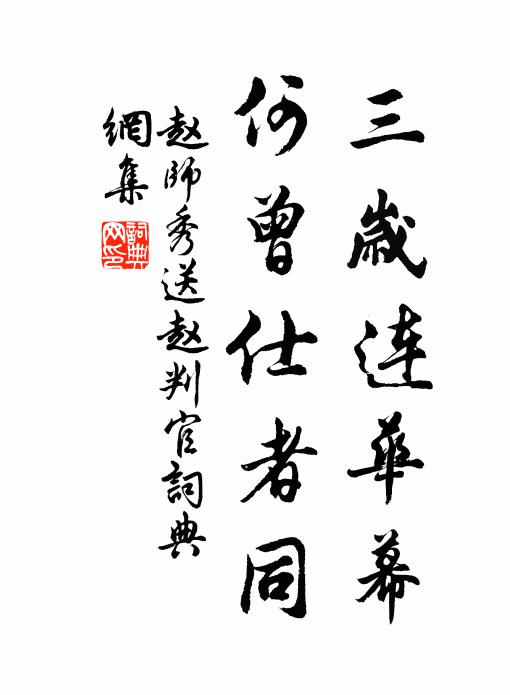 三歲連華幕
何曾仕者同
赵師秀送赵判官詞典
網集
詞典
网印